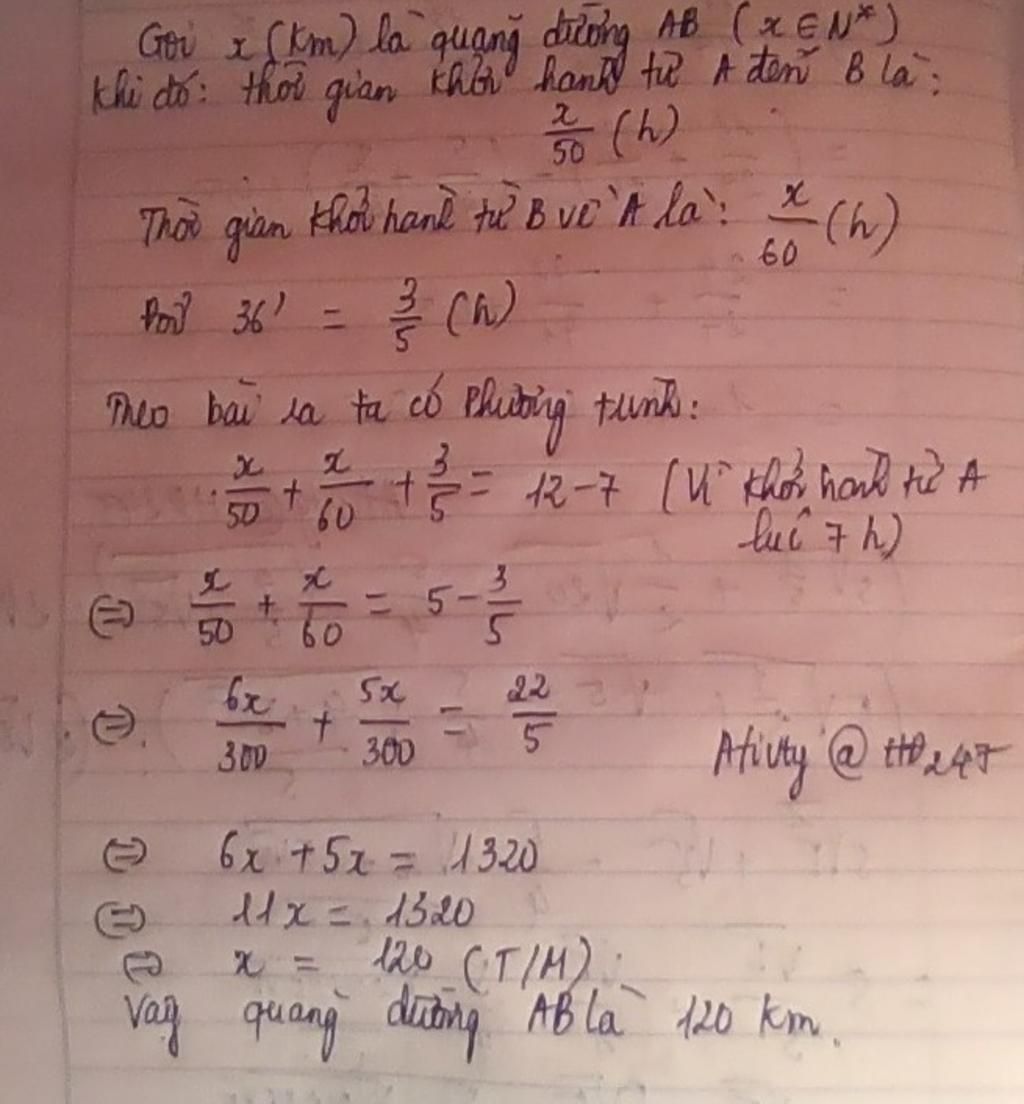 Gọi x (km) là quãng đường AB (x ∈ N*)
khi đó: thời gian khởi hành từ A đến B là:
x/50 (h)
Thời gian khởi hành từ B về A là: x/60 (h)
Đổi 36' = 3/5 (h)
Theo bài ra ta có phương trình:
x/50 + x/60 + 3/5 = 12 - 7 (Vì khởi hành từ A
lúc 7 h)
⇔ x/50 + x/60 = 5 - 3/5
⇔ 6x/300 + 5x/300 = 22/5
Ativty @ HĐ247
⇔ 6x + 5x = 1320
⇔ 11x = 1320
⇔ x = 120 (T/M)
Vậy quãng đường AB là 120 km.